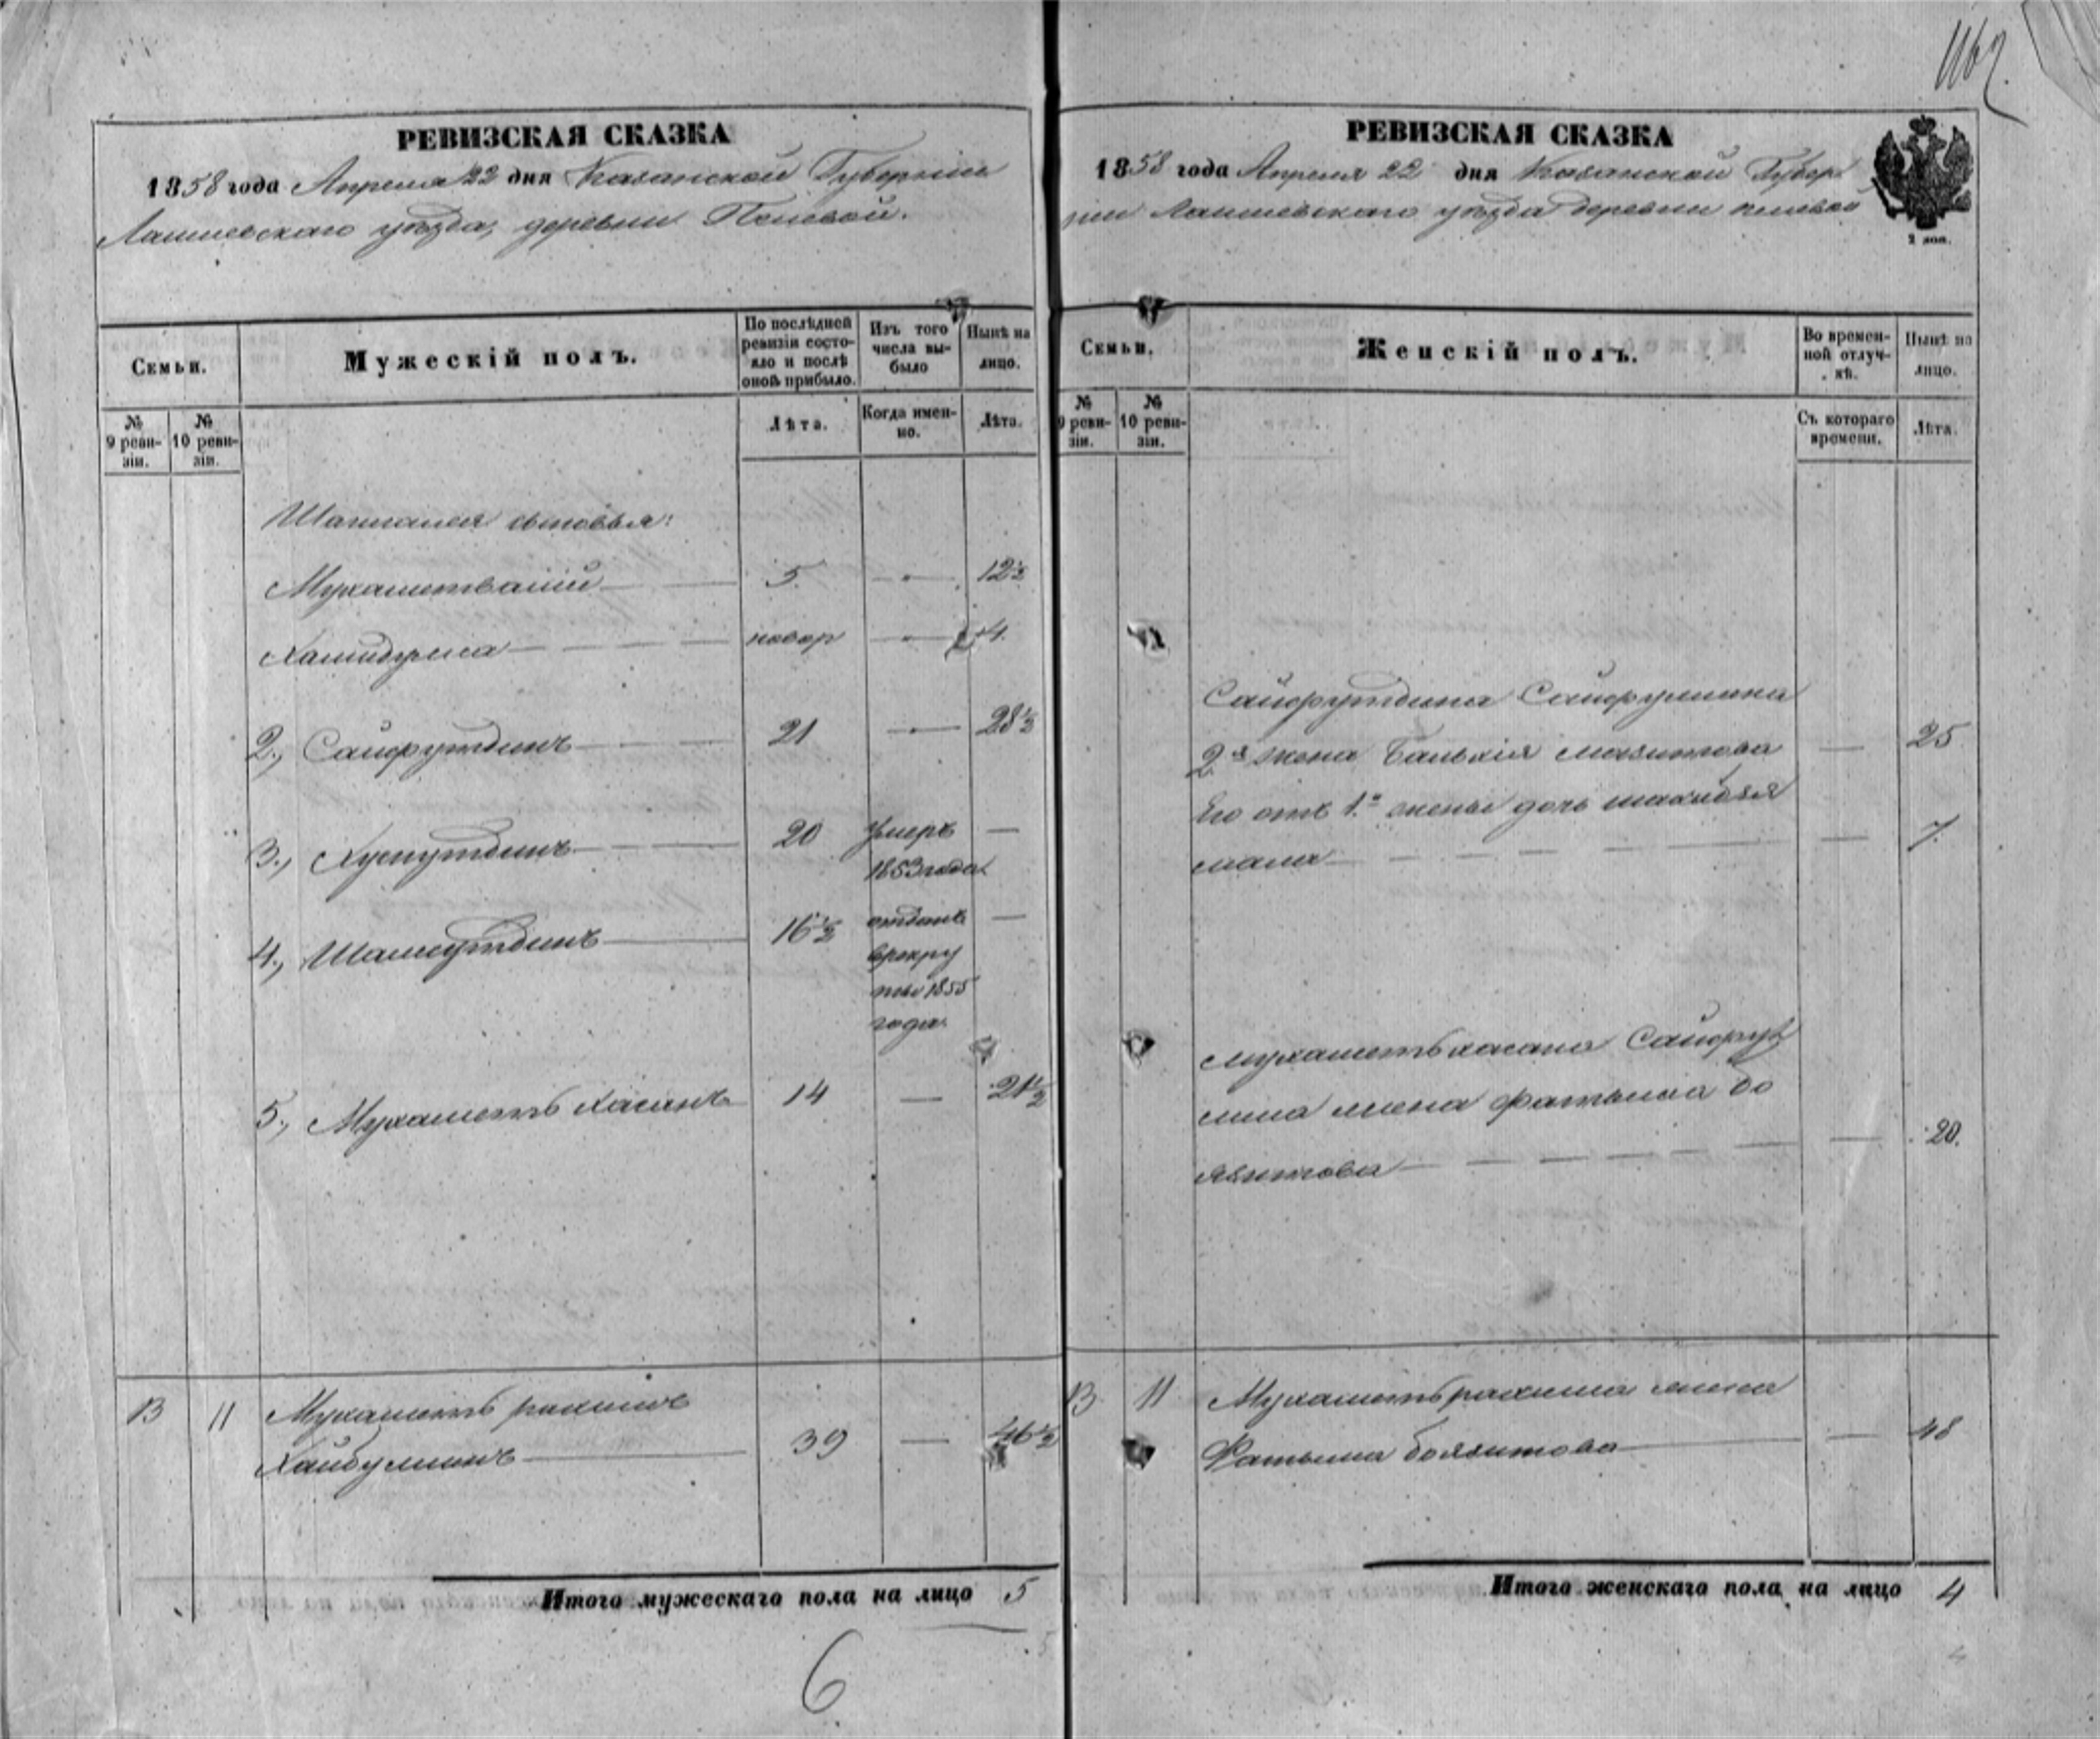 1162.
РЕВИЗСКАЯ СКАЗКА
1858 года Апреля 22 дня Казанской Губерніи
Лаишевскаго уѣзда, деревни
Семьи.
Мужескій полъ.
По послѣдней ревизіи состояло и послѣ оной прибыло.
Изъ того числа выбыло
Нынѣ на лицо.
№ 9 ревизіи.
№ 10 ревизіи.
Лѣта.
Когда именно.
Лѣта.
сыновья:
Мухаметвалій 5. — 12½
новор — 4.
2., Сайфутдинъ 21 — 28½
3., Хуснутдинъ 20 умеръ —
1853 года
4., Шамсутдинъ 16½ отданъ —
врекру
ты 1855
года.
5., Мухаметъ хасанъ 14 — 21½
13 11 Мухаметъ рахимъ
Хайбулинъ 39 — 46½
Итого мужескаго пола на лицо 5
6
РЕВИЗСКАЯ СКАЗКА
1858 года Апреля 22 дня Казанской Губер
ніи Лаишевскаго уѣзда деревни
Семьи.
Женскій полъ.
Во временной отлучкѣ.
Нынѣ на лицо.
№ 9 ревизіи.
№ 10 ревизіи.
Съ котораго времени.
Лѣта.
Сайфутдина Сайфулина
2я жена — 25
Его отъ 1й жены дочь
— 7.
Мухаметьхасана Сайфу
лина жена Фатьима бо
язитова — 20.
13 11 Мухаметьрахима жена
Фатьима боязитова — 48
Итого женскаго пола на лицо 4